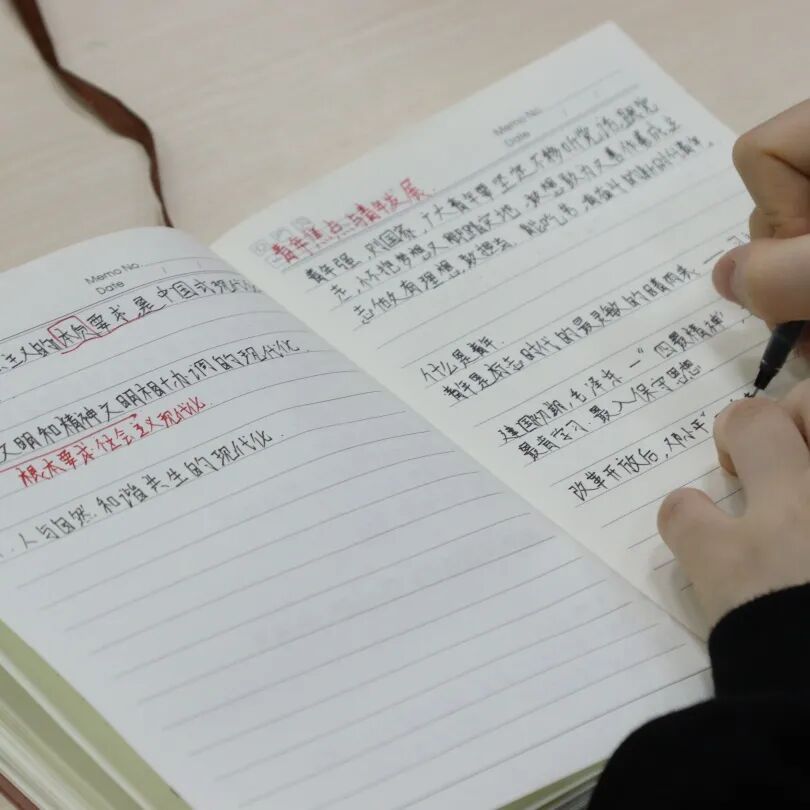 Memo No.
Date
主义的本质要求是中国式现代化
文明和精神文明相协调的现代化.
根本要求社会主义现代化
人与自然和谐共生的现代化.
Memo No.
Date / /
青年焦点与青年发展.
青年强,则国家,广大青年要坚定不移听党话,跟党
走,怀抱梦想又脚踏实地,敢想敢为又善作善成,立
志做有理想,敢担当,能吃苦,肯奋斗的新时代青年.
什么是青年.
青年是标志时代的最灵敏的晴雨表. ——习
建国初期,毛泽东—"四最精神",
最肯学习.最入保守思想
改革开放后,邓小平"